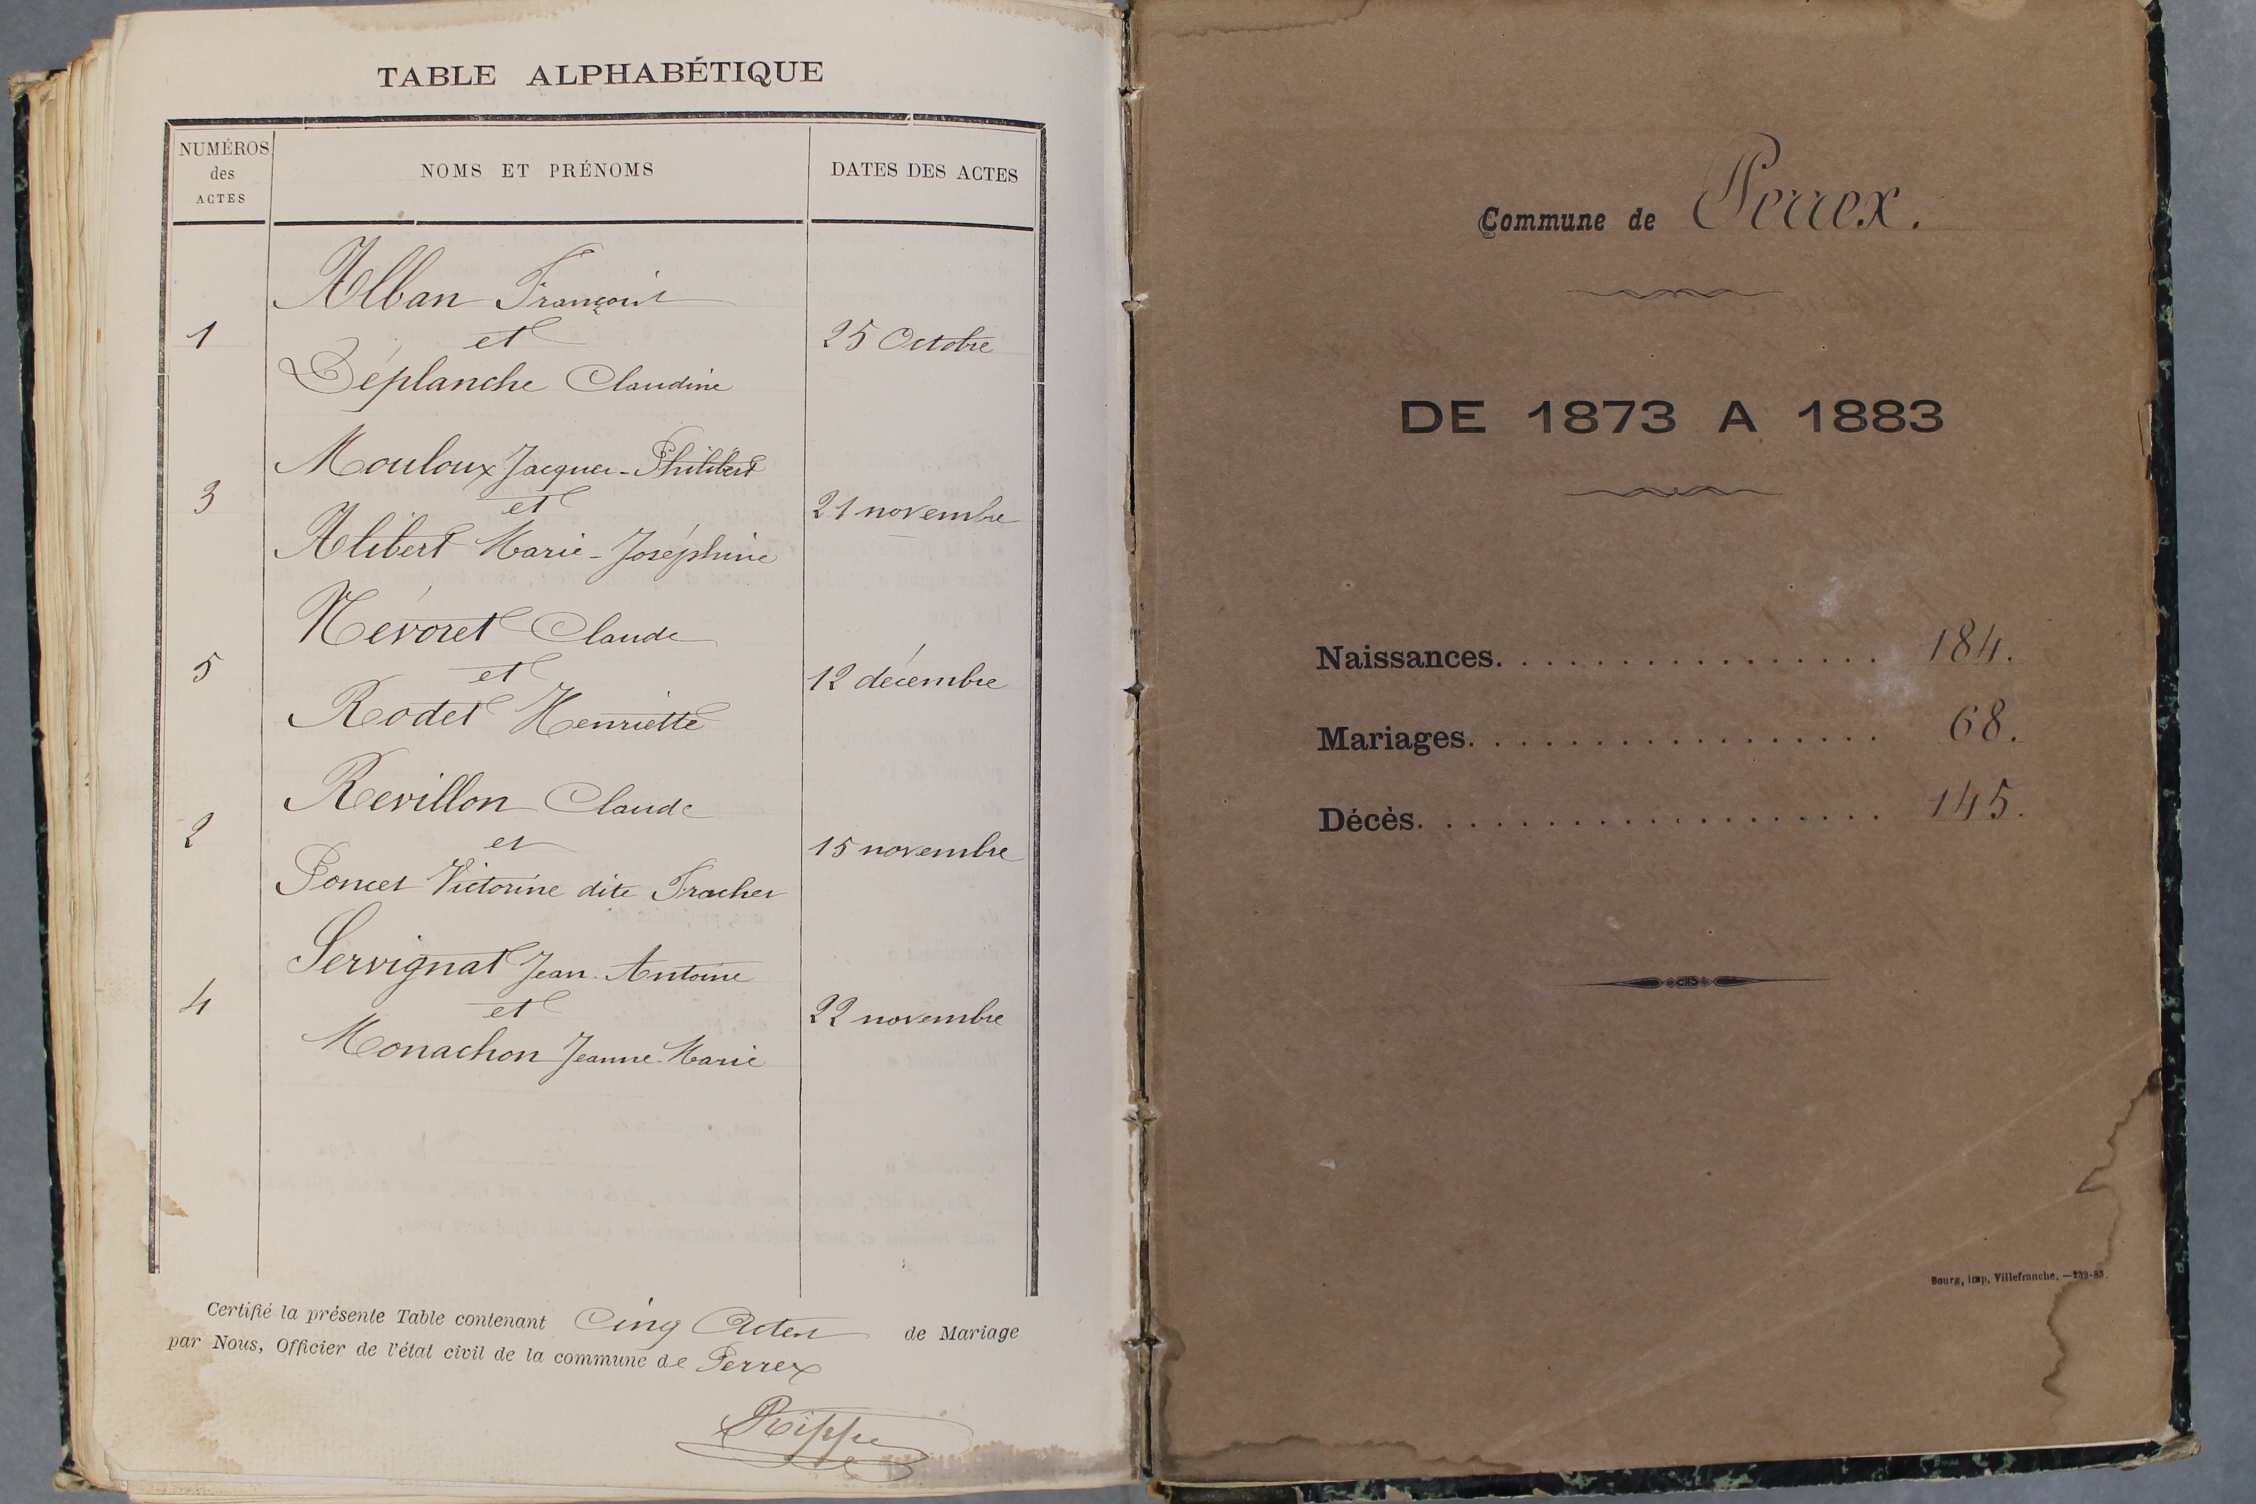 TABLE ALPHABÉTIQUE
NUMÉROS
des
ACTES
NOMS ET PRÉNOMS
DATES DES ACTES
Alban François
1
et
25 Octobre
Déplanche Claudine
Mouloux Jacques-Philibert
3
et
21 novembre
Alibert Marie-Joséphine
Névoret Claude
5
et
12 décembre
Rodet Henriette
Revillon Claude
2
et
15 novembre
Poncet Victorine dite Tracher
Servignat Jean-Antoine
4
et
22 novembre
Monachon Jeanne-Marie
Certifié la présente Table contenant Cinq Actes de Mariage
par Nous, Officier de l'état civil de la commune de Perrex
Rippe
Commune de Perrex.
DE 1873 A 1883
Naissances. . . . . . . . . . . . . . . . . 184.
Mariages. . . . . . . . . . . . . . . . . . 68.
Décès. . . . . . . . . . . . . . . . . . . . 145.
Bourg, imp. Villefranche. —